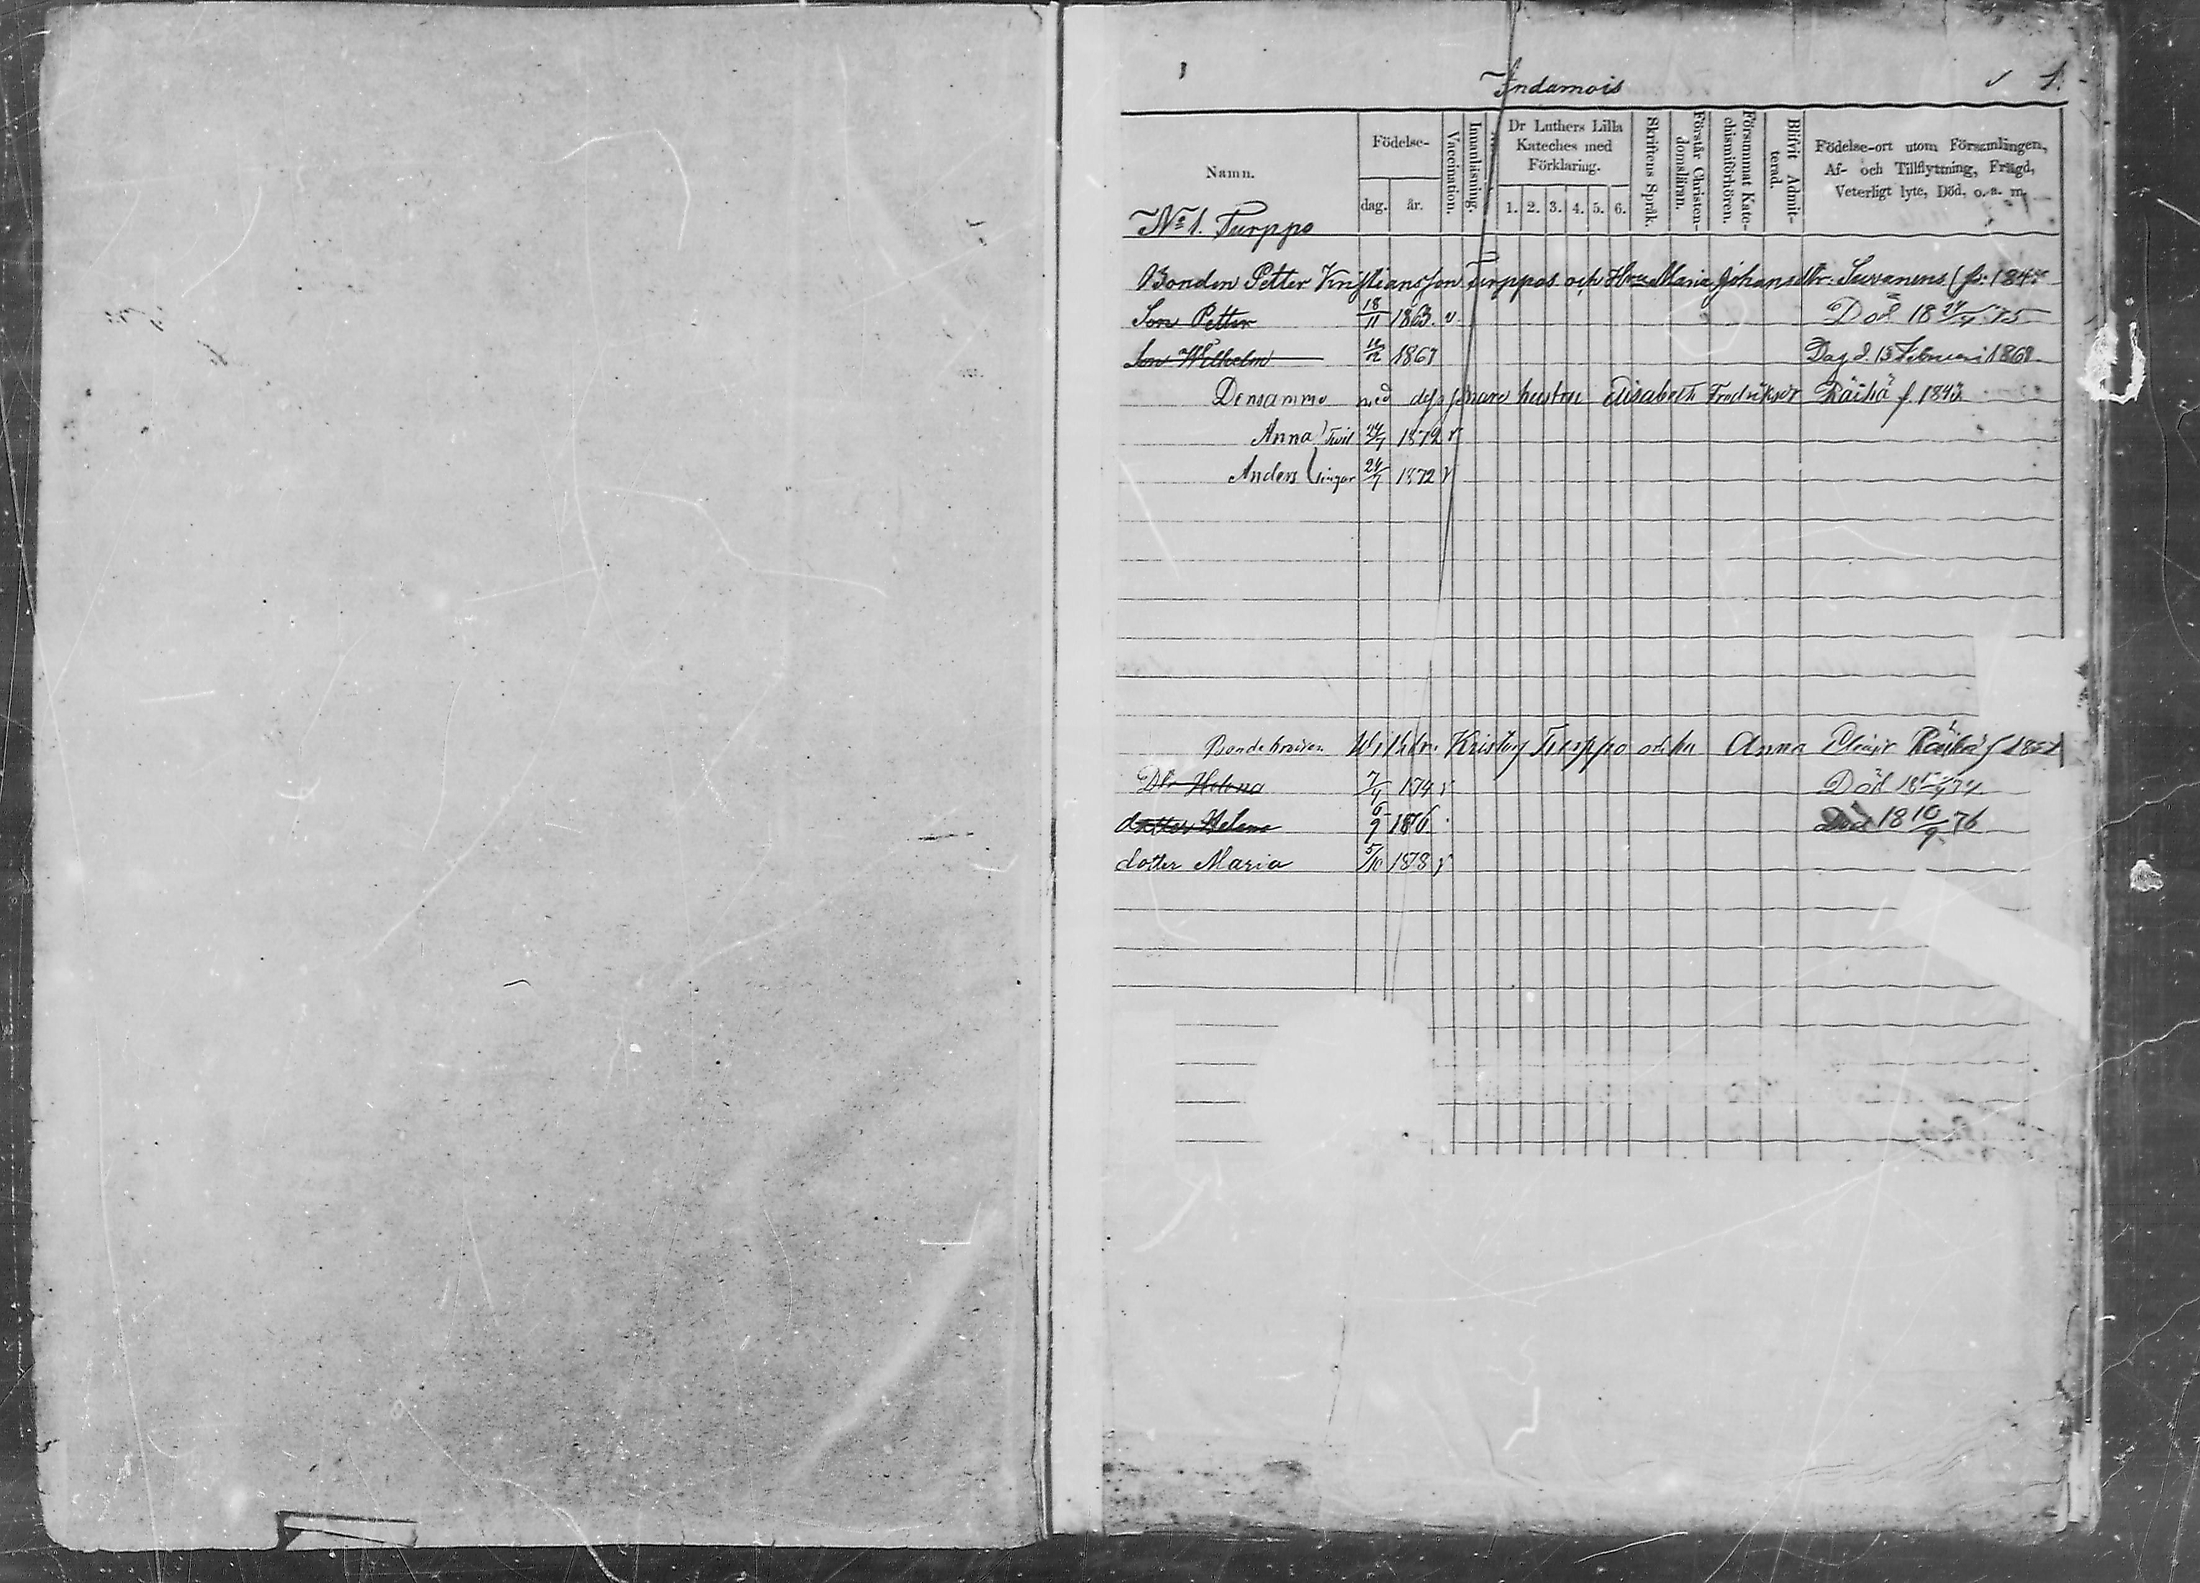 Indamois 1.
Namn.
Födelse-
dag. år.
Vaccination.
Innanläsning.
Dr Luthers Lilla Kateches med Förklaring.
1. 2. 3. 4. 5. 6.
Skriftens Språk.
Förstår Christen-domsläran.
Försummat Kate-chismiförhören.
Blifvit Admit-terad.
Födelse-ort utom Församlingen, Af- och Tillflyttning, Frägd, Veterligt lyte, Död, o. a. m.
No 1. Turppo
Bonden Petter Kristiansson Turppas och Hru Maria Johansdtr. Suvanens
Son Petter 18/11 1863. v Död
Son Wilhelm 1867 Dag d. 13 Februari 1868
Densamma med dess senare hustru Elisabeth Fredriksdr Räihä f.
Anna Tvil 24/7 1872 v
Anders lingar 24/7 1872 v
Kristians Turppo och hu Anna Räihä f
Dtr Helena 7/4 Död
dotter Helena 6/9 1876 Död 18 10/9 76
dotter Maria 5/10 1878 v